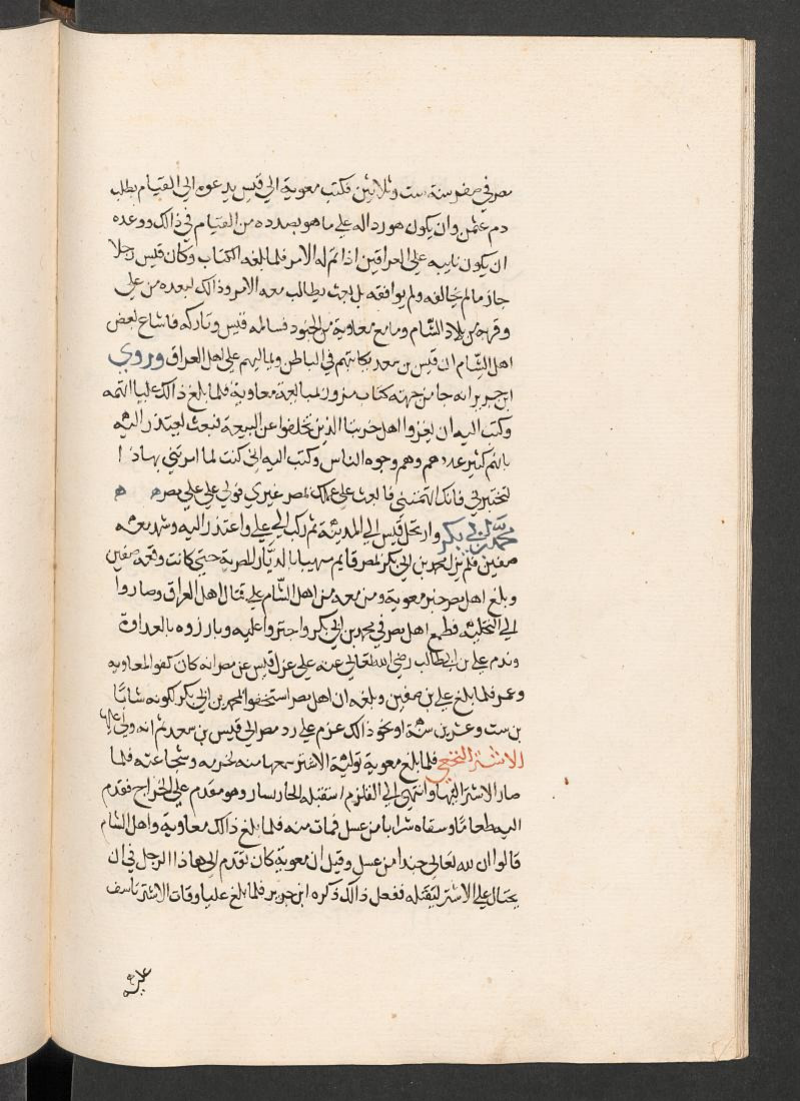 مصر في صفر سنة ست وثلاثين فكتب معوية الى قيس يدعوه الى القيام بطلب
دم عثمن وان يكون موردا له على ما هو بصدده من القيام في ذالك ووعده
ان يكون نايبه على العراقين اذا تم له الامر فلما بلغه الكتاب وكان قيس رجلا
حازما لم يخالفه ولم يوافقه بل بعث يطالب معه الامر وذالك لبعده من على
وقربه من بلاد الشام وما مع معاوية من الجنود فسالمه قيس وتاركه فاشاع بعض
اهل الشام ان قيس بن سعد يكاتبهم في الباطن ويماليهم على اهل العراق وروى
ابن جرير انه جا من جهته كتاب مزور بمبايعة معاوية فلما بلغ ذالك عليا اتهمه
وكتب اليه ان يغزوا اهل خربتا الذين تخلفوا عن البيعة فبعث يعتذر اليه
بانهم كثير عددهم وهم وجوه الناس وكتب اليه انى كنت لما امرتني بهاذا
لتختبرنى فانك اتهمتنى فابعث على عملك بمصر غيري فولى على على مصر
محمد بن ابي بكر وارتحل قيس الى المدينة ثم ركب الى على واعتذر اليه وشهد معه
صفين فلم يزل محمد بن ابى بكر بمصر قايم مهيبا بالديار المصرية حتى كانت وقعة صفين
وبلغ اهل مصر خبر معوية ومن معه من اهل الشام على قتال اهل العراق وصاروا
الى التحكيم فطمع اهل مصر في محمد بن ابى بكر واجتروا عليه وبارزوه بالعداوة
وندم على بن ابى طالب رضى الله تعالى عنه على عزل قيس عن مصر انه كان كفوا لمعاويه
وعمر فلما بلغ على بن صفين وبلغه ان اهل مصر استخفوا بمحمد بن ابى بكر لكونه شابا
بن ست وعشرين سنة او نحو ذالك عزم على رد مصر الى قيس بن سعد ثم انه ولى عليها
الاشتر النخعي فلما بلغ معوية تولية الاشتر مصر علم انه سيمنعها منه لحربه وشجاعته فلما
صار الاشتر اليها وانتهى الى القلزم استقبله الجايسار وهو مقدم على الخراج فقدم
اليه طعاما وسقاه شرابا من عسل فمات منه فلما بلغ ذالك معاوية واهل الشام
قالوا ان لله تعالى جندا من عسل وقيل ان معوية كان تقدم الى هاذا الرجل في ان
يحتال على الاشتر ليقتله ففعل ذالك ذكره ابن جرير فلما بلغ عليا وفات الاشتر تاسف
عليه